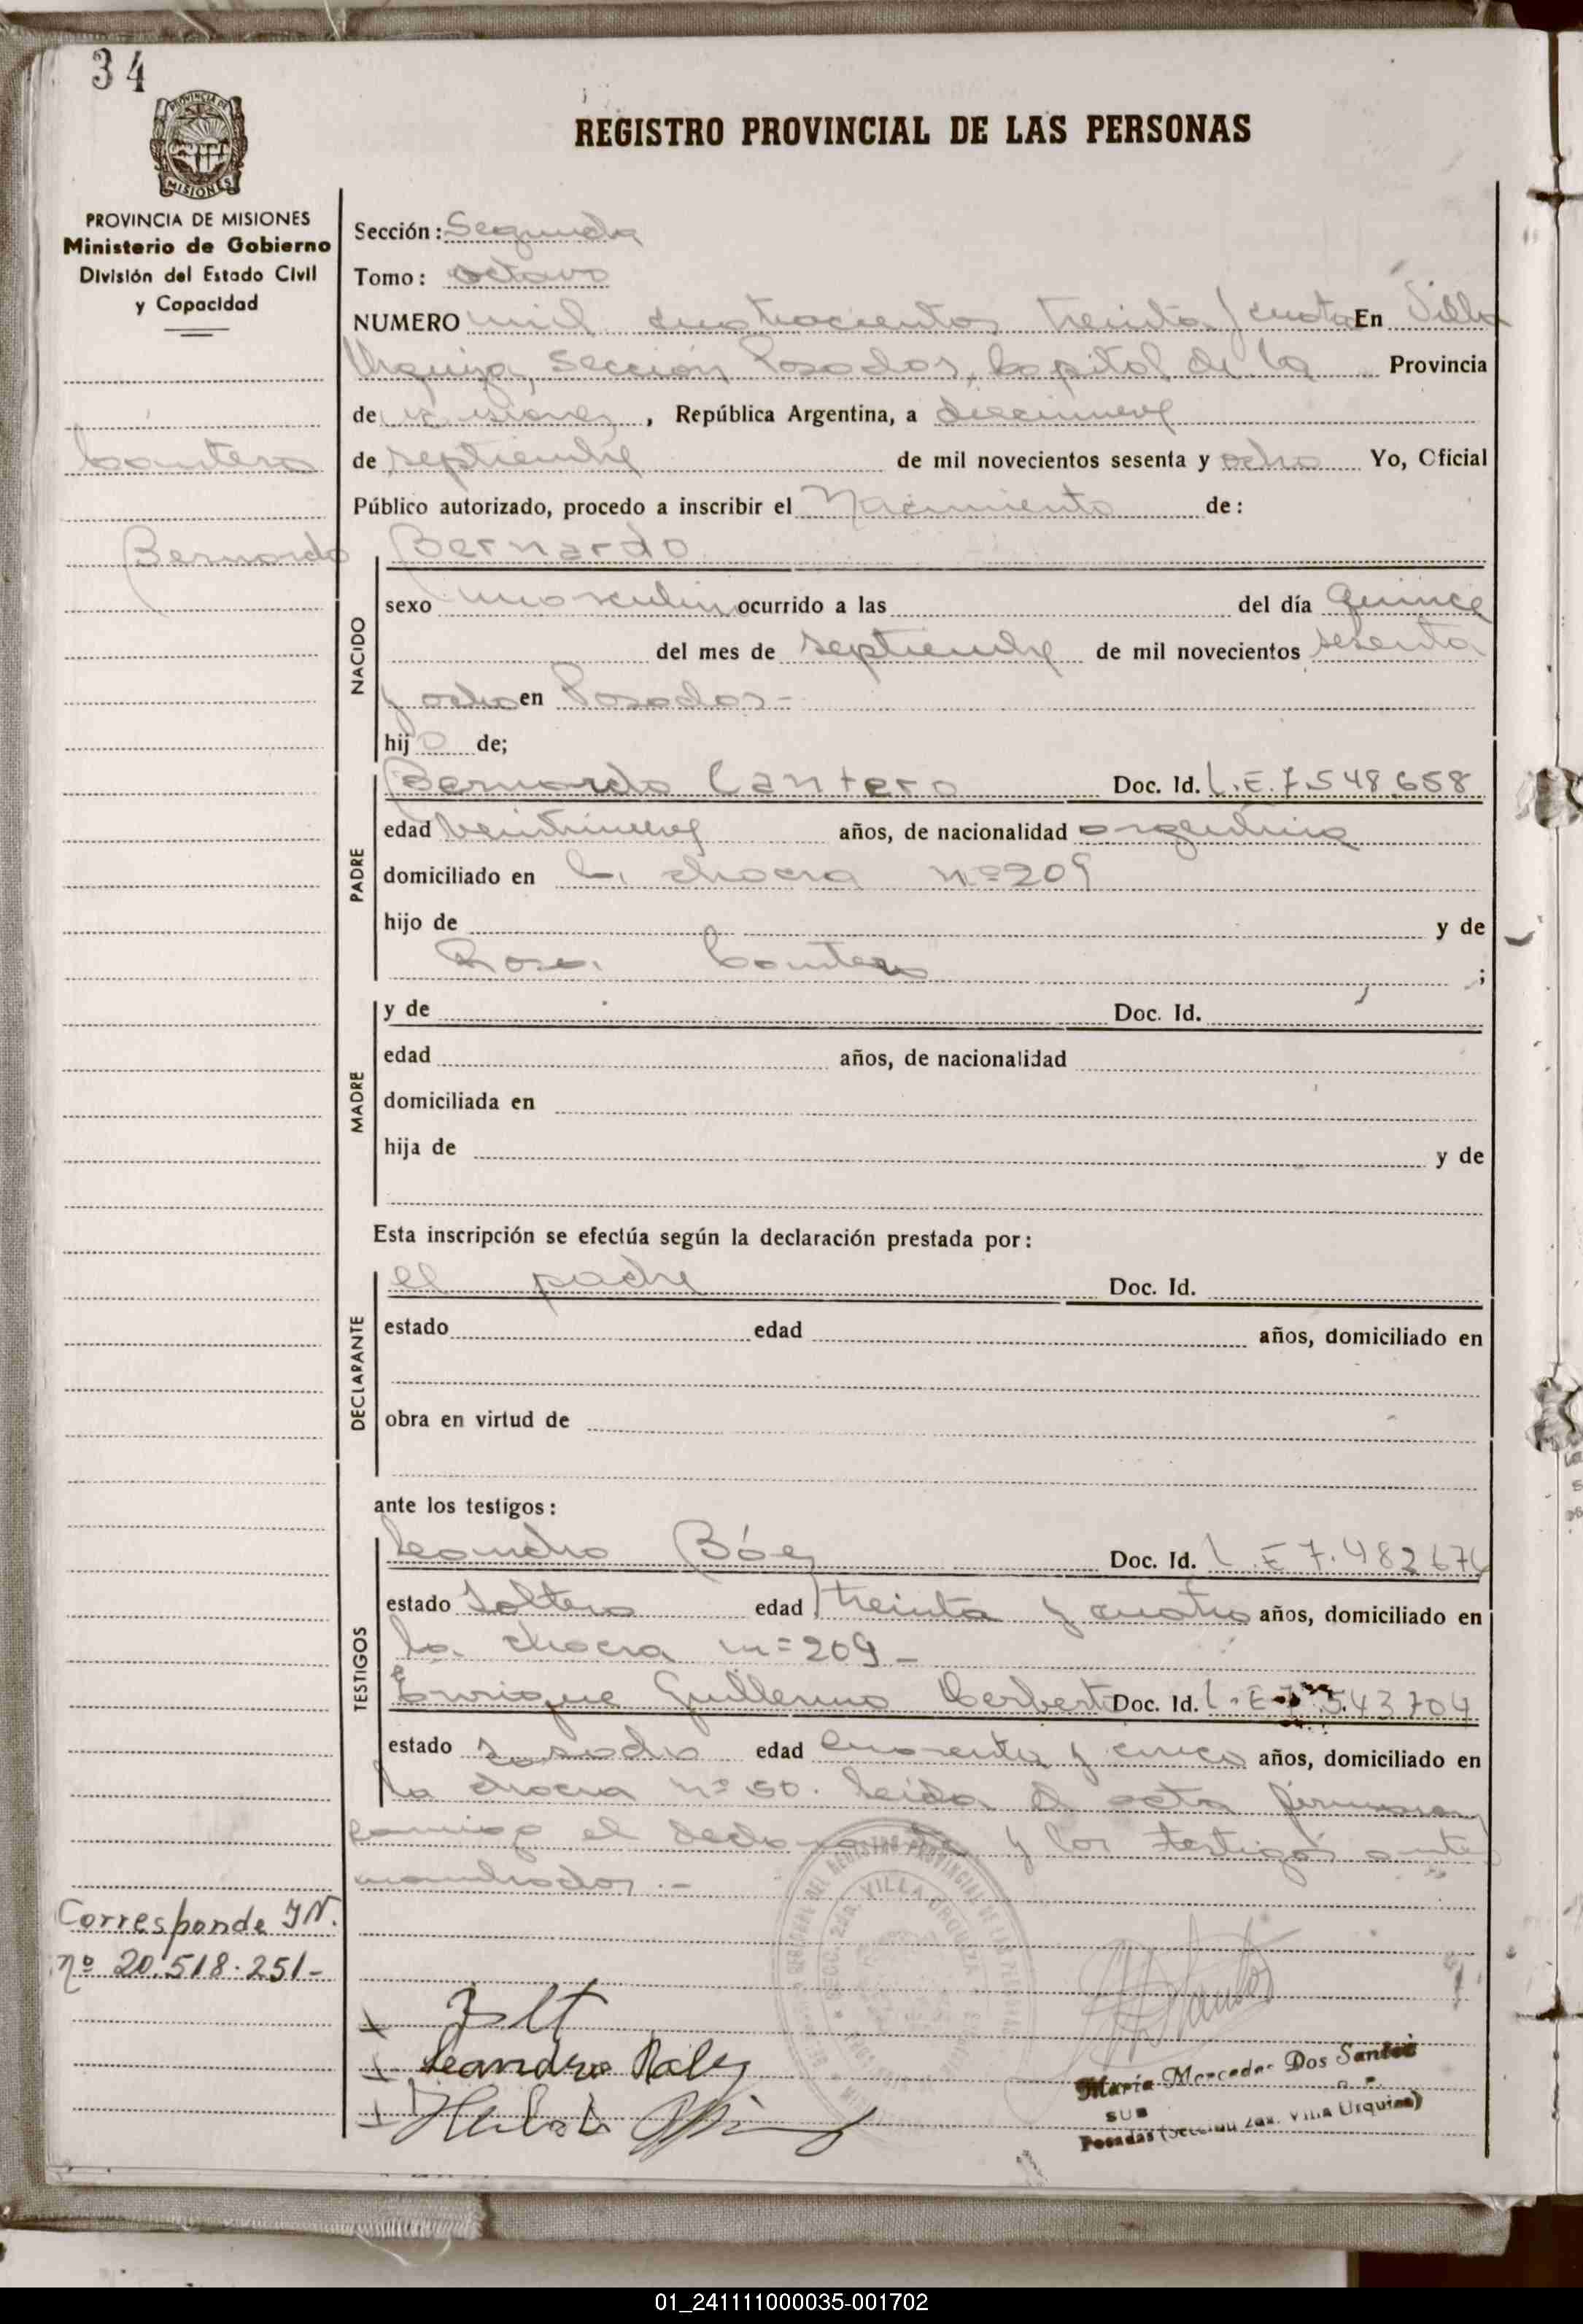 34
PROVINCIA DE MISIONES
PROVINCIA DE MISIONES
Ministerio de Gobierno
División del Estado Civil
y Capacidad
Cantero
Bernardo
REGISTRO PROVINCIAL DE LAS PERSONAS
Sección: Segunda
Tomo: octavo
NUMERO mil cuatrocientos treinta y cuatro En Villa
Urquiza, Sección Posadas, Capital de la Provincia
de Misiones, República Argentina, a diecinueve
de septiembre de mil novecientos sesenta y ocho Yo, Oficial
Público autorizado, procedo a inscribir el Nacimiento de:
Bernardo
NACIDO
sexo masculino ocurrido a las del día quince
del mes de septiembre de mil novecientos sesenta
y ocho en Posadas -
hijo de;
PADRE
Bernardo Cantero Doc. Id. L.E.7.548.658
edad veintinueve años, de nacionalidad argentina
domiciliado en la chacra nº 209
hijo de y de
Rosa Cantero ;
MADRE
y de Doc. Id.
edad años, de nacionalidad
domiciliada en
hija de y de
Esta inscripción se efectúa según la declaración prestada por:
DECLARANTE
el padre Doc. Id.
estado edad años, domiciliado en
obra en virtud de
ante los testigos:
TESTIGOS
Leandro Báez Doc. Id. L.E 7.482.676
estado soltero edad treinta y cuatro años, domiciliado en
la chacra nº 209 -
Enrique Guillermo Doc. Id. L.E 7.543.704
estado casado edad cuarenta y cinco años, domiciliado en
la chacra nº 50. Leída el acta firman
conmigo el declarante y los testigos ante
nombrados. -
Corresponde I N.
nº 20.518.251-
Leandro Baez
María Mercedes Dos Santos
SUB
Posadas (Sección 2da. Villa Urquiza)
SECC. 2da. VILLA URQUIZA
01_241111000035-001702